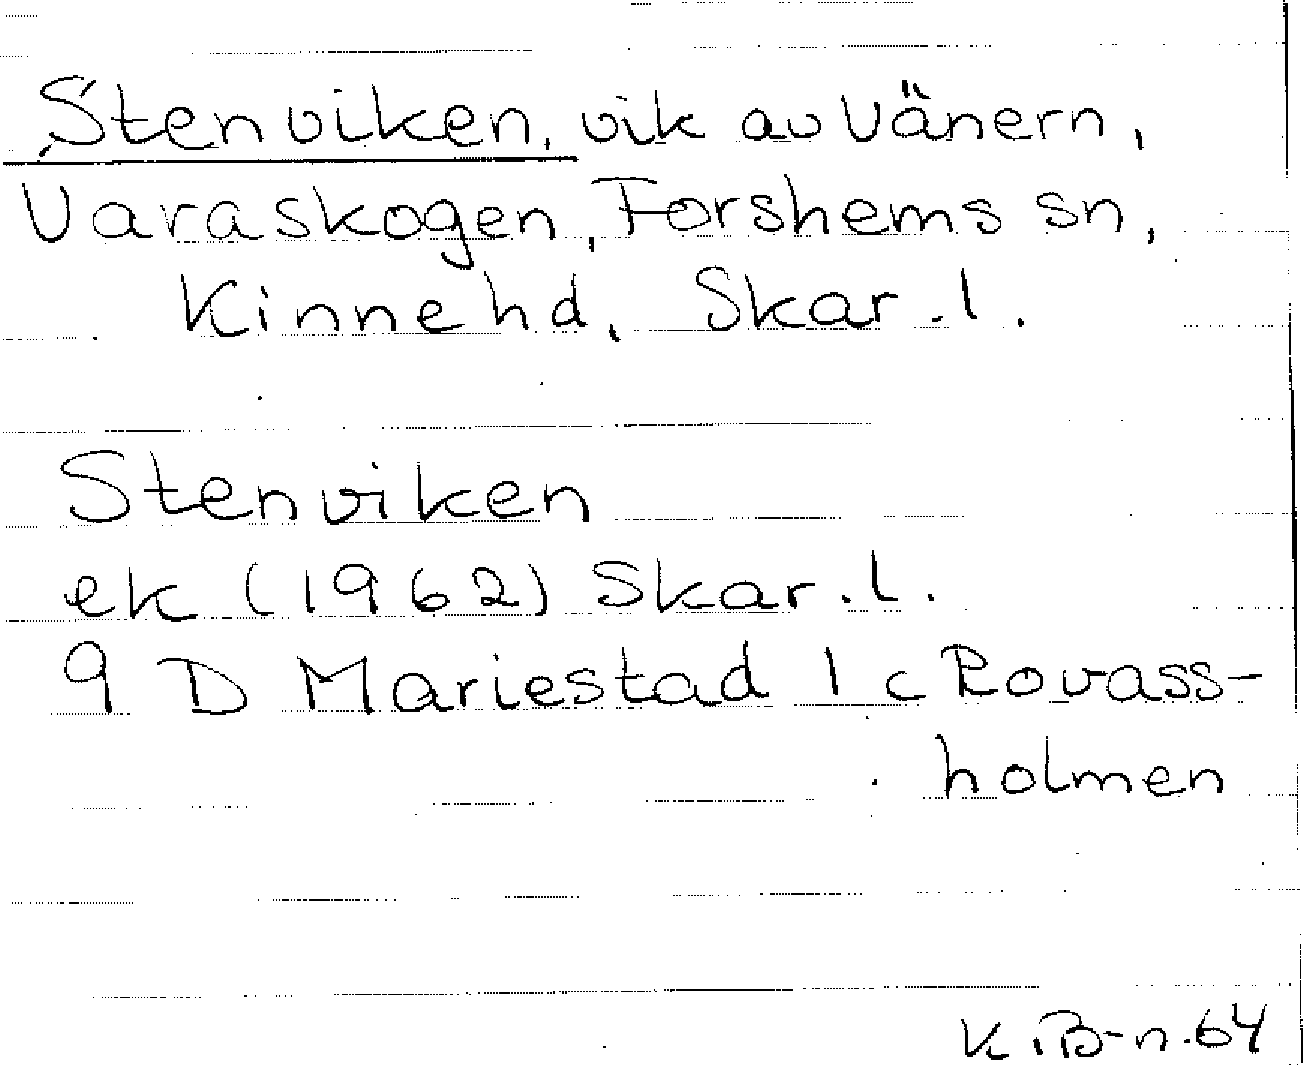 Stenviken, vik av Vänern,
Varaskogen, Forshems sn,
Kinne hd, Skar. l.
Stenviken
ek (1962) Skar. l.
9 D Mariestad 1 c Rovass-
holmen
K. B-n. 64